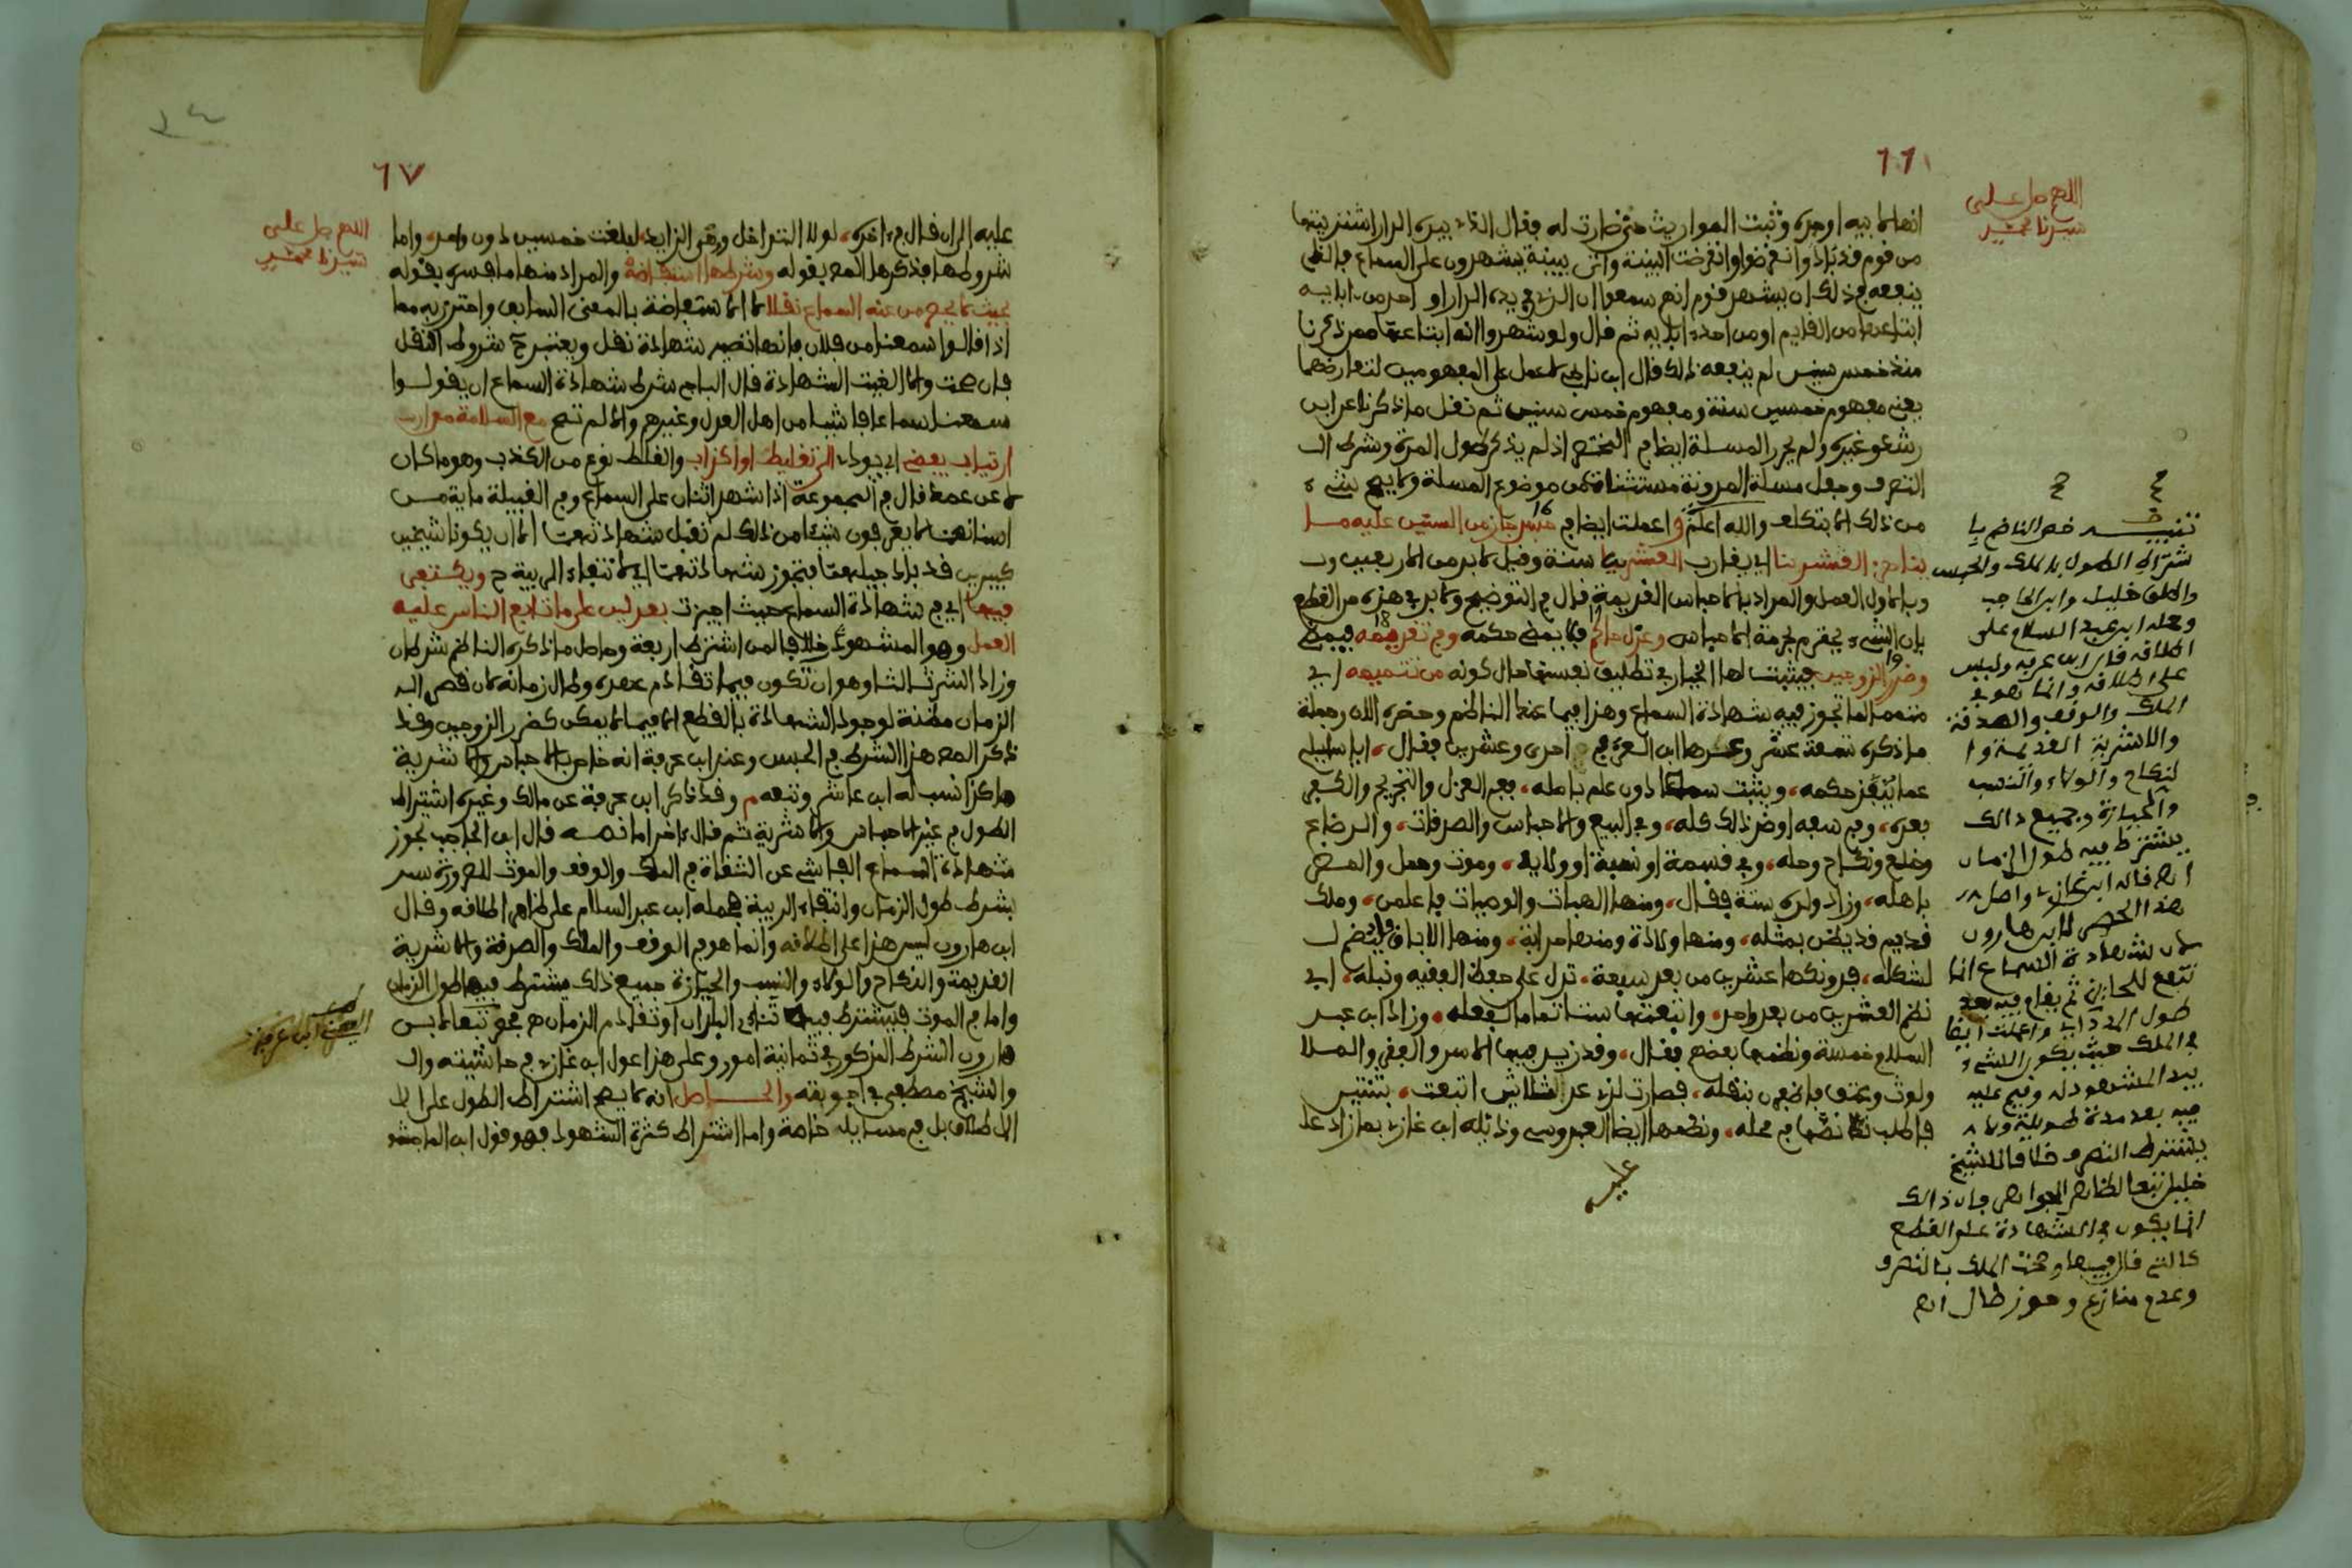 ٦٦
اللهم صل على
سيدنا محمد
انها لابيه او جده وثبت المواريث حتى صارت له فقال الذي بيده الدار اشتريتها
من قوم قد بادوا وانقرضوا وانقرضت البينة واتى ببينة يشهدون على السماع فالذي
ينفعه في ذلك ان يشهد قوم انهم سمعوا ان الذي في يده الدار او احد من ابايه
ابتاعها من القايم او من احد ابايه ثم قال ولو شهدوا انه ابتاعها ممن ذكرنا
منذ خمس سنين لم ينفعه ذلك قال ابن ناجي لا عمل على المفهومين لتعارضهما
يعني مفهوم خمسين سنة ومفهوم خمس سنين ثم نقل ما ذكرنا عن ابن
رشد وغيره ولم يحرر المسلة ايضا في المختصر اذ لم يذكر طول المدة وشرط
التصرف وجعل مسلة المدونة مستثناة من موضوع المسلة ولا يصح شيء
من ذلك الا بتكلف والله اعلم واعملت ايضا في حبس جاز من السنين عليه
يناهز العشرينا اي يقارب العشرين سنة وقيل لابد من الاربعين
وبالاول العمل والمراد بالاحباس القديمة قال في التوضيح ولابد في هذه من القطع
بان الشيء يحترم بحرمة الاحباس وعزل حاكم فلا يمضي حكمه وفي تقديمه فيمضي
وضرر الزوجين فيثبت لها الخيار في تطليق نفسها حال كونه من تتميمه اي
متمما لما تجوز فيه شهادة السماع وهذا فيما عند الناظم وحضره الان وجملة
ما ذكره تسعة عشر وعدها ابن العربي احدى وعشرين فقال، ايا سايلي
عما ينفذ حكمه، ويثبت سمعا دون علم باصله، ففي العزل والتجريح والكفر
بعده، وفي سفه او ضد ذلك كله، وفي البيع والاحباس والصدقات، والرضاع
وخلع ونكاح وحله، وفي قسمة او نسبة او ولاية، وموت وحمل والمضر
باهله، وزاد ولده ستة فقال، ومنها الهبات والوصيات فاعلمن، وملك
قديم قد يظن بمثله، ومنها ولادة ومنها حرابة، ومنها الاباق فليضم
لشكله، فدونكها عشرين من بعد سبعة، تدل على حفظ الفقيه ونبله، اي
نظم العشرين من بعد واحد، واتبعتها ستا تماما لفعله، وزاد ابن عبد
السلام خمسة ونظمها بعضهم فقال، وقد زيد فيها الاسر والفقد والملا
ولوث وعتق فاظفرن بنقله، فصارت لدى عد ثلاثين اتبعت، بثنتين
فاطلب نصها في محله، ونظمها ايضا العبدوسي وذيله ابن غازي بما زاد
عليه
تنبيه خص الناظم
شتراط الطول بالملك والحبس
واطلق خليل وابن الحاجب
وحمله ابن عبد السلام على
اطلاقه قال ابن عرفة وليس
على اطلاقه وانما هو في
الملك والوقف والصدقة
والاشرية القديمة وا
لنكاح والولاء والنسب
والحيازة وجميع ذالك
يشترط فيه طول الزمان
انظر قال ابن غازي واصل
هذا الحصر لابن هارون
لان شهادة السماع انما
تنفع للحايز ثم يقام فيه بعد
طول المدة واعملت ايضا
في الملك حيث يكون الشيء
بيد المشهود له وقيم عليه
فيه بعد مدة طويلة ولا
يشترط التصرف خلافا للشيخ
خليل تبعا لظاهر الجواهر فان ذالك
انما يكون في الشهادة على القطع
كالتي قال فيها وصحت الملك بالتصرف
وعدم منازع وحوز طال انظر
٦٧
اللهم صل على
سيدنا محمد
عليه الى ان قال في اخره، لولا التداخل وهي الزايد، لبلغت خمسين دون واحد، واما
شروطها فذكرها المص بقوله وشرطها استفاضة والمراد منها ما فسره بقوله
بحيث لا يحصر من عنه السماع نقلا لا الاستفاضة بالمعنى السابق واحترز به مما
اذا قالوا سمعنا من فلان فانها تصير شهادة نقل ويعتبر ح شروط النقل
فان صحت والا الغيت الشهادة قال الباجي شرط شهادة السماع ان يقولوا
سمعنا سماعا فاشيا من اهل العدل وغيرهم والا لم تصح مع السلامة من
ارتياب يفضي اي يودي الى تغليط او اكذاب والغلط نوع من الكذب وهو ما كان
لا عن عمد قال في المجموعة اذا شهد اثنان على السماع وفي القبيلة ماية من
اسنانهما لا يعرفون شيئا من ذلك لم تقبل شهادتهما الا ان يكونا شيخين
كبيرين قد باد جيلهما فتجوز شهادتهما اي لانتفاء الريبة ح ويكتفى
فيها اي في شهادة السماع حيث اجيزت بعدلين على ما تابع الناس عليه
العمل وهو المشهور خلافا لمن اشترط اربعة وحاصل ما ذكره الناظم شرطان
وزاد الشراح ثالثا وهو ان تكون فيما تقادم عهده وطال زمانه لان قصر
الزمان مظنة لوجود الشهادة بالقطع الا فيما لا يمكن كضرر الزوجين وقد
ذكر المص هذا الشرط في الحبس وعند ابن عرفة انه خاص بالاحباس والاشرية
هكذا نسب له ابن عاشر وتبعه م وقد ذكر ابن عرفة عن مالك وغيره اشتراط
الطول في غير الاحباس والاشرية ثم قال اخرا ما نصه قال ابن الحاجب تجوز
شهادة السماع الفاشي عن الثقات في الملك والوقف والموت للضرورة
بشرط طول الزمان وانتفاء الريبة فحمله ابن عبد السلام على ظاهر اطلاقه وقال
ابن هارون ليس هذا على اطلاقه وانما هو في الوقف والملك والصدقة والاشرية
القديمة والنكاح والولاء والنسب والحيازة جميع ذلك يشترط فيها طول الزمان
واما في الموت فيشترط فيها تنائي البلدان او تقادم الزمان هو تبعا لابن
هارون الشرط المذكور في ثمانية امور وعلى هذا عول ابن غازي في حاشيته
والشيخ مصطفى في اجوبته والحاصل انه لا يصح اشتراط الطول على
الاطلاق بل في مسايل خاصة واما اشتراط كثرة الشهود فهو قول ابن الماجشون